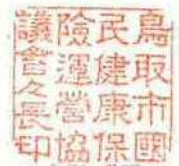 鳥取市國
民健康保
險運營協
議會々長印